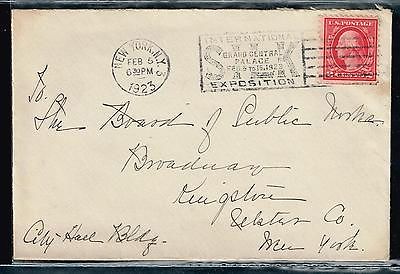 NEW YORK, N.Y. 3
FEB 5
630 PM
1923
INTERNATIONAL
SILK
GRAND CENTRAL
PALACE
FEB 5 TO 15, 1923
EXPOSITION
U.S. POSTAGE
2 CENTS 2
To,
The Board of Public Works
Broadway
Kingston
Ulster Co.
New York.
City Hall Bldg.